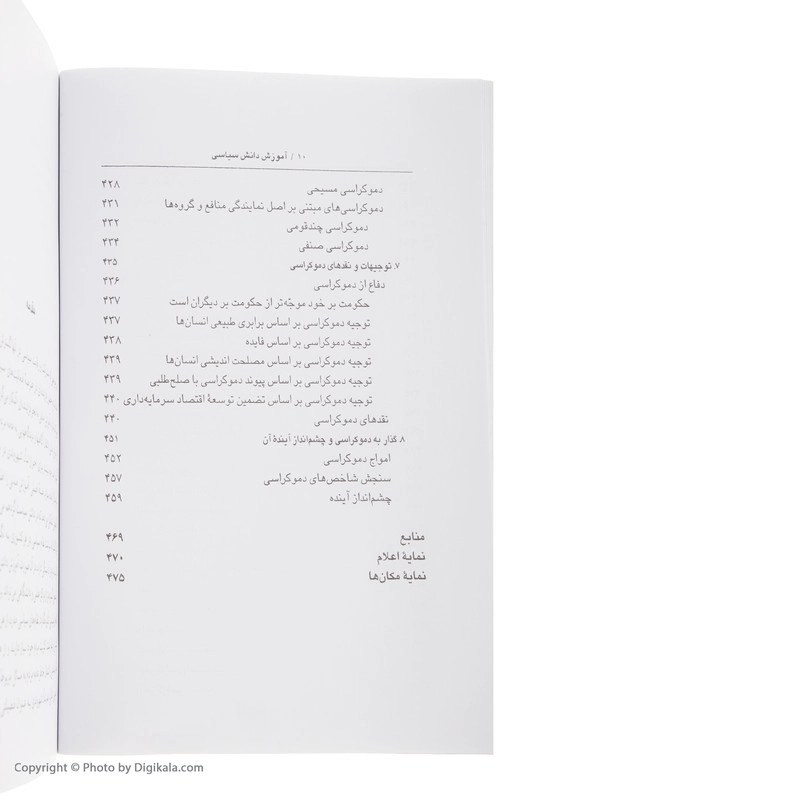 ۱۰ / آموزش دانش سیاسی
دموکراسی مسیحی ۴۲۸
دموکراسی‌های مبتنی بر اصل نمایندگی منافع و گروه‌ها ۴۳۱
دموکراسی چندقومی ۴۳۲
دموکراسی صنفی ۴۳۴
۷. توجیهات و نقدهای دموکراسی ۴۳۵
دفاع از دموکراسی ۴۳۶
حکومت بر خود موجّه‌تر از حکومت بر دیگران است ۴۳۷
توجیه دموکراسی بر اساس برابری طبیعی انسان‌ها ۴۳۷
توجیه دموکراسی بر اساس فایده ۴۳۸
توجیه دموکراسی بر اساس مصلحت اندیشی انسان‌ها ۴۳۹
توجیه دموکراسی بر اساس پیوند دموکراسی با صلح‌طلبی ۴۳۹
توجیه دموکراسی بر اساس تضمین توسعهٔ اقتصاد سرمایه‌داری ۴۴۰
نقدهای دموکراسی ۴۴۰
۸ گذار به دموکراسی و چشم‌انداز آیندهٔ آن ۴۵۱
امواج دموکراسی ۴۵۲
سنجش شاخص‌های دموکراسی ۴۵۷
چشم‌انداز آینده ۴۵۹
منابع ۴۶۹
نمایهٔ اعلام ۴۷۰
نمایهٔ مکان‌ها ۴۷۵
Copyright © Photo by Digikala.com